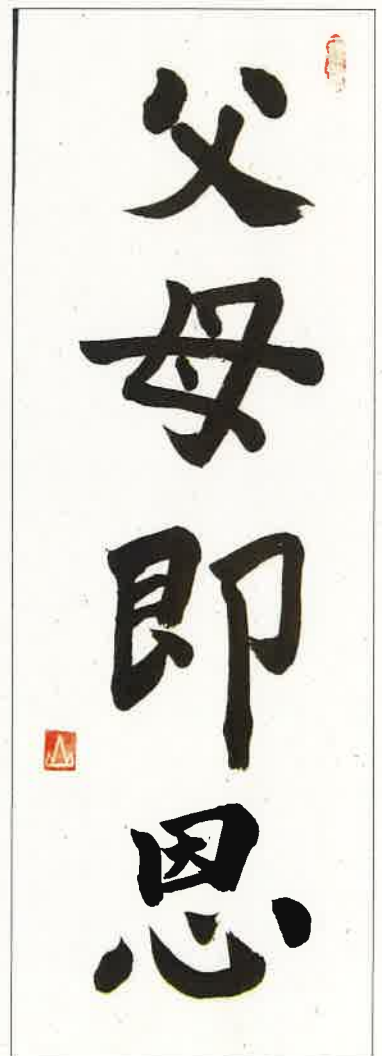 父母即恩